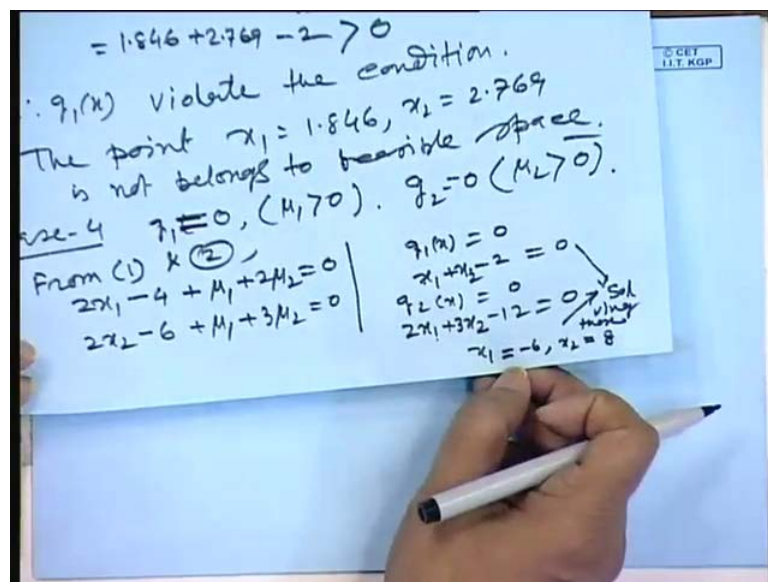 = 1.846 + 2.769 - 2 > 0
∴ g₁(x) violate the condition.
The point x₁ = 1.846, x₂ = 2.769
is not belongs to feasible space.
ase-4 g₁ = 0, (μ₁ > 0). g₂ = 0 (μ₂ > 0).
From (1) & (2),
2x₁ - 4 + μ₁ + 2μ₂ = 0
2x₂ - 6 + μ₁ + 3μ₂ = 0
g₁(x) = 0
x₁ + x₂ - 2 = 0
g₂(x) = 0
2x₁ + 3x₂ - 12 = 0
Sol
ving
these
x₁ = -6, x₂ = 8
© CET
I.I.T. KGP